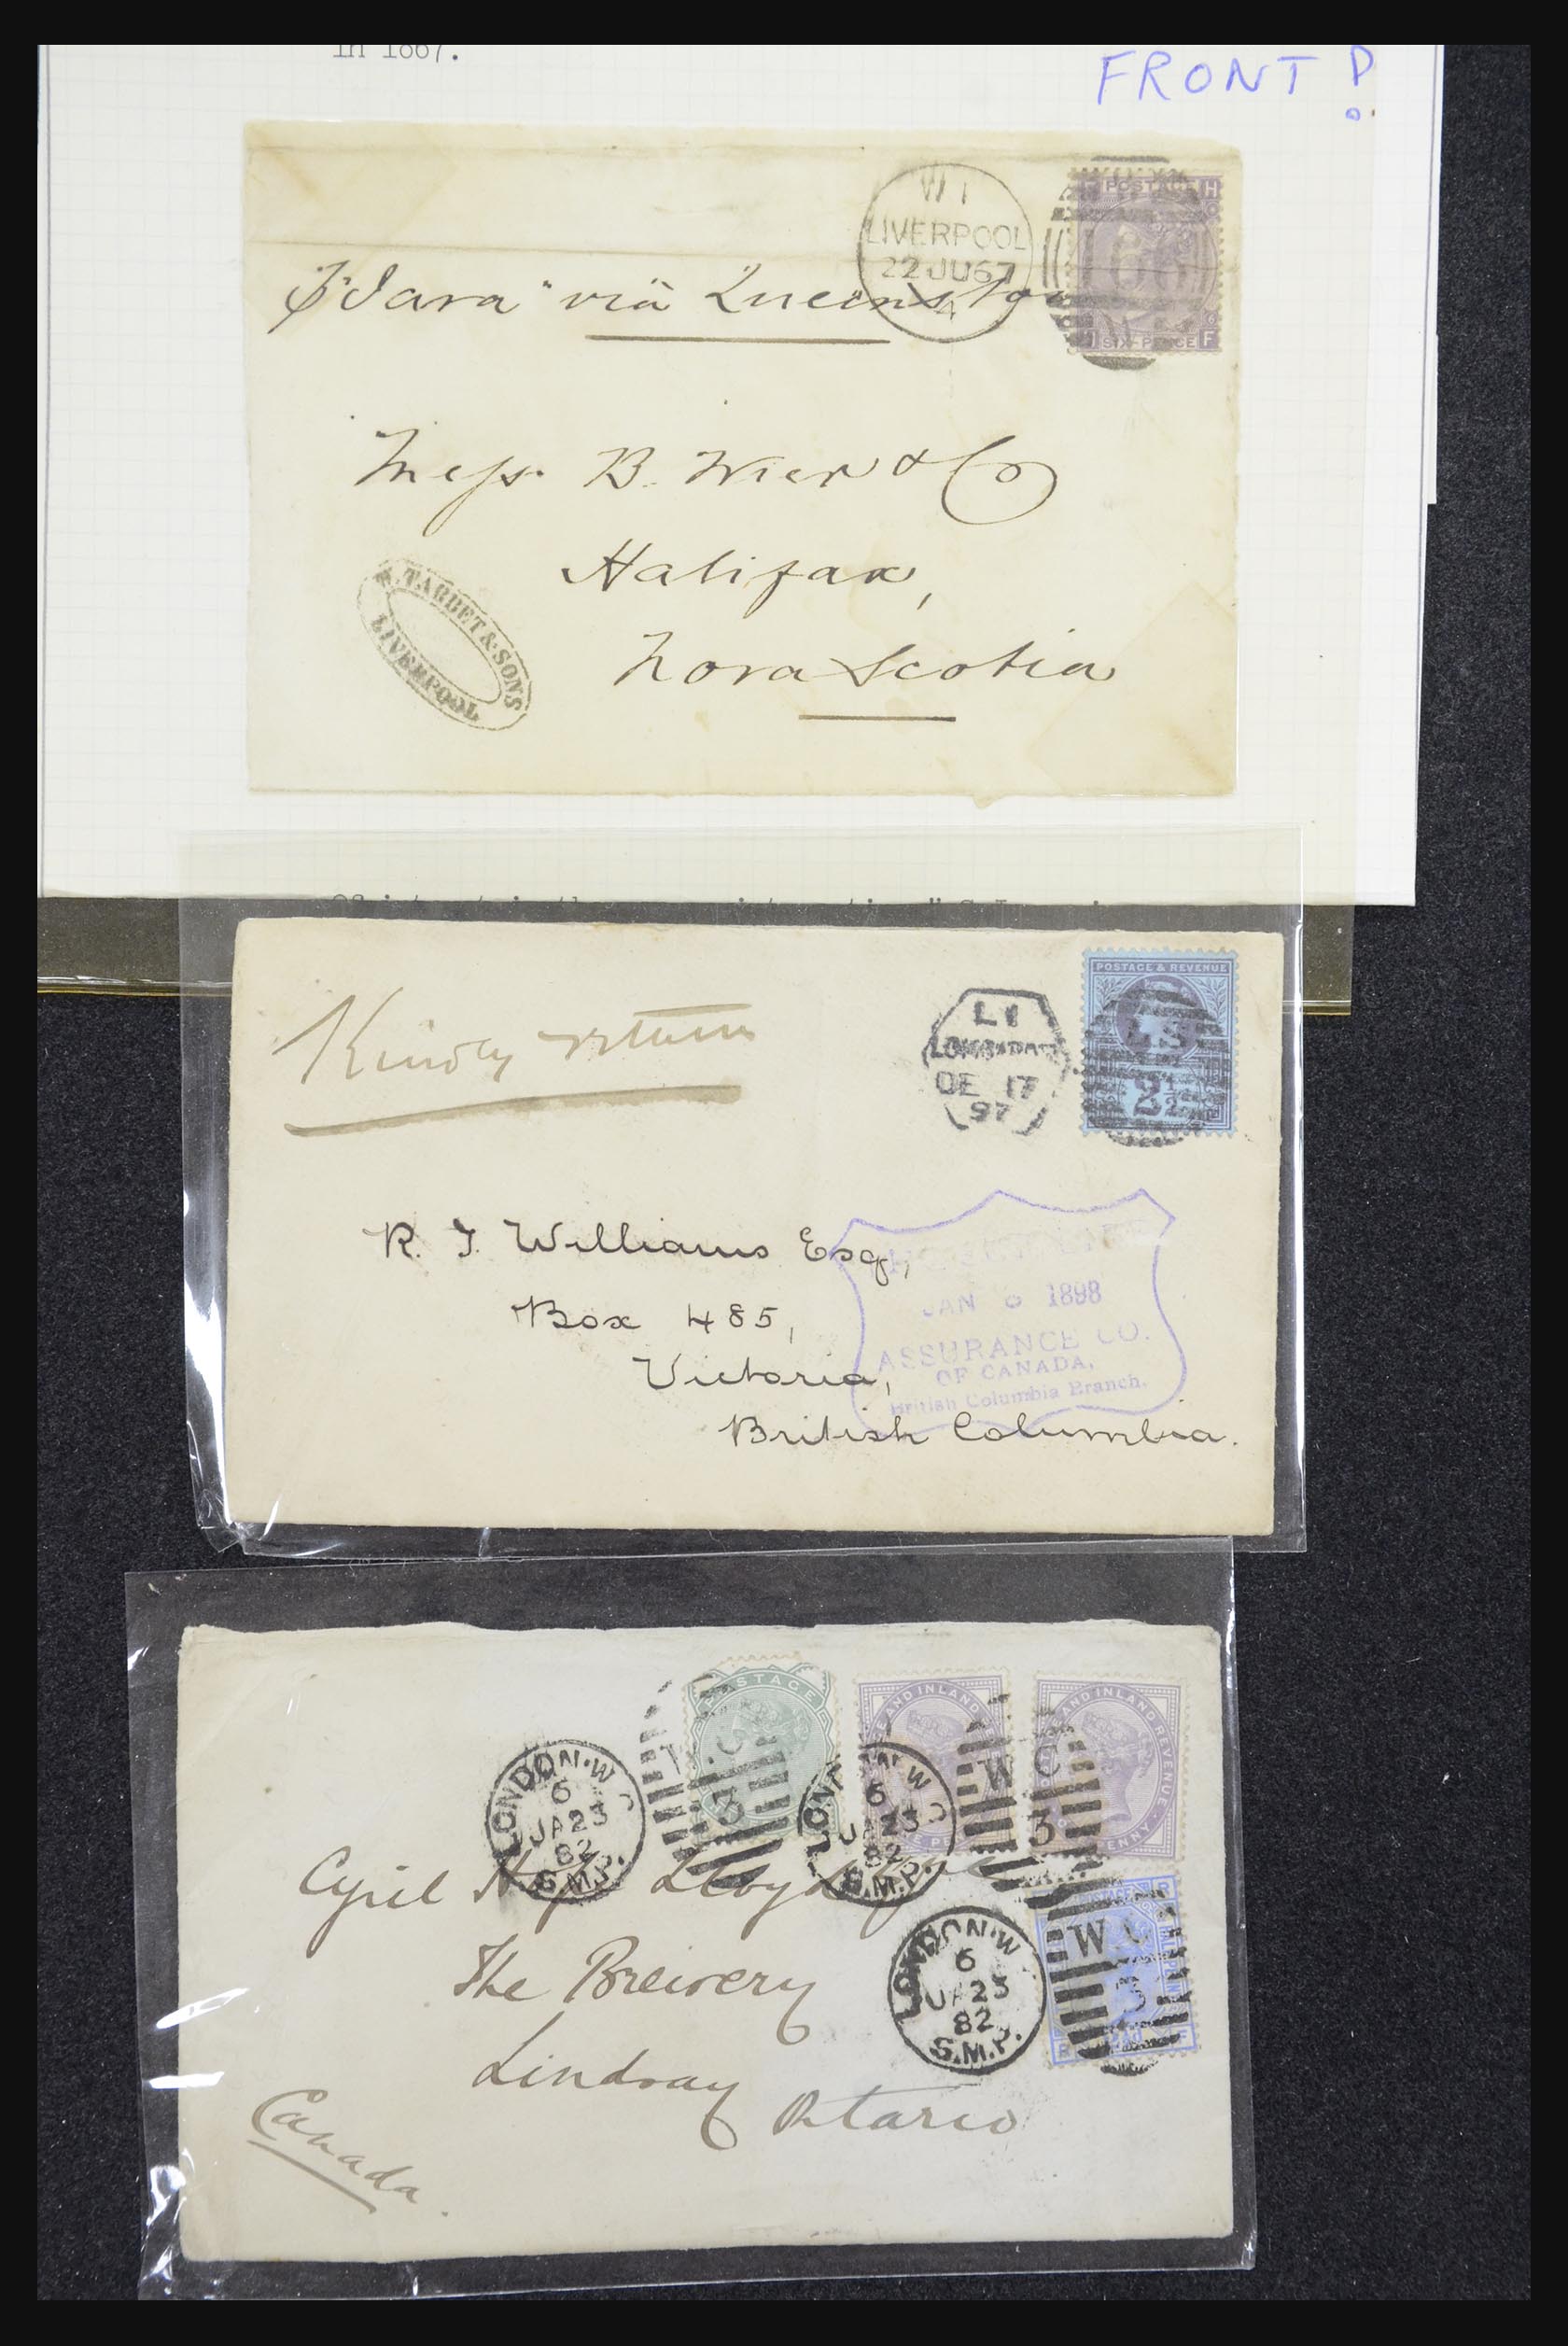 in 1867.
FRONT !
W 1
LIVERPOOL
22 JU 67
4
POSTAGE
H
SIX-PENCE
F
℘ "Java" via Queenstow
Mess. B. Wier & Co
Halifax,
Nova Scotia
TARBET & SONS
LIVERPOOL
Kindly return
L1
DE 17
97
POSTAGE & REVENUE
2½
R. J. Williams Esq,
Box 485,
Victoria,
British Columbia.
JAN 1898
ASSURANCE CO.
OF CANADA,
British Columbia Branch.
POSTAGE
AND INLAND
AND INLAND REVENUE
PENNY
LONDON·W
6
JA 23
82
S.M.P.
W C
3
LONDON·W
6
JA 23
82
S.M.P.
W C
3
LONDON·W
6
JA 23
82
S.M.P.
W C
3
Cyril Lloyd
The Brewery
Lindsay Ontario
Canada.